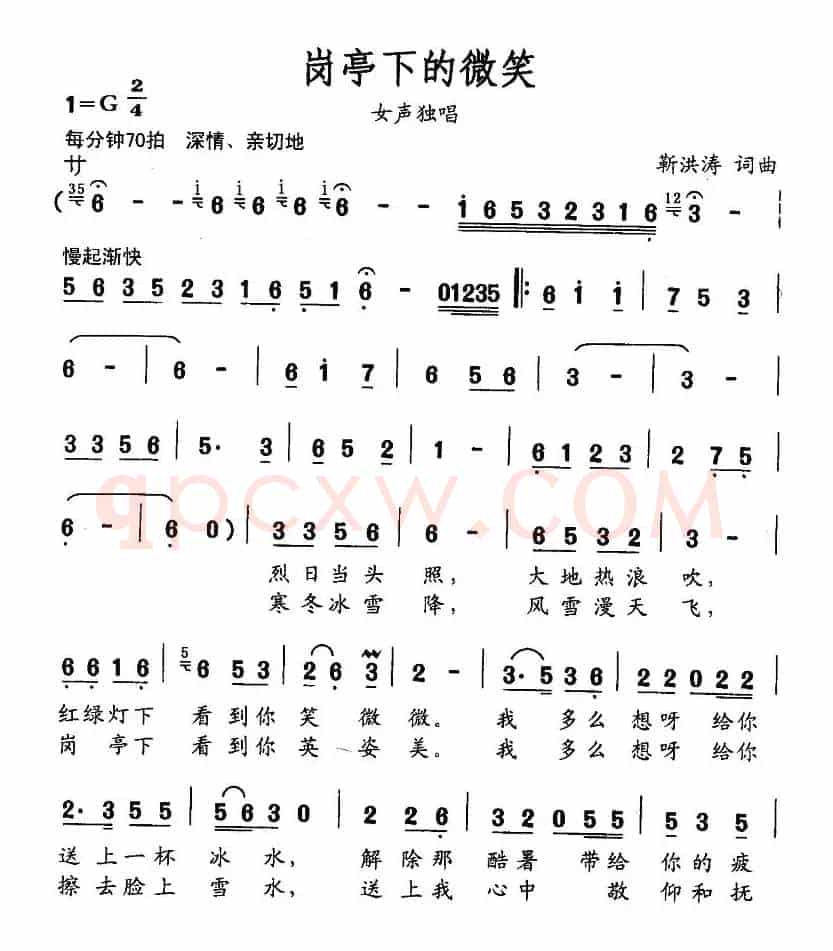 岗亭下的微笑
1=G 2/4
女声独唱
每分钟70拍 深情、亲切地
靳洪涛 词曲
廾
( 35 6 - - i 6 i 6 i 6 i 6 - - i 6 5 3 2 3 1 6 12 3 -
慢起渐快
5 6 3 5 2 3 1 6 5 1 6 - 01235 |: 6 i i | 7 5 3 |
6 - | 6 - | 6 i 7 | 6 5 6 | 3 - | 3 - |
3 3 5 6 | 5· 3 | 6 5 2 | 1 - | 6 1 2 3 | 2 7 5 |
6 - | 6 0 ) | 3 3 5 6 | 6 - | 6 5 3 2 | 3 - |
qpcxw.COM
烈日当头 照, 大地热浪 吹,
寒冬冰雪 降, 风雪漫天 飞,
6 6 1 6 | 5 6 5 3 | 2 6 3 | 2 - | 3· 5 3 6 | 2 2 0 2 2 |
红绿灯下 看到你 笑 微 微。 我 多么 想呀 给你
岗 亭下 看到你 英 姿 美。 我 多么 想呀 给你
2· 3 5 5 | 5 6 3 0 | 2 2 6 | 3 2 0 5 5 | 5 3 5 |
送上一杯 冰 水, 解除那 酷暑 带给 你的疲
擦去脸上 雪 水, 送上我 心中 敬 仰和抚